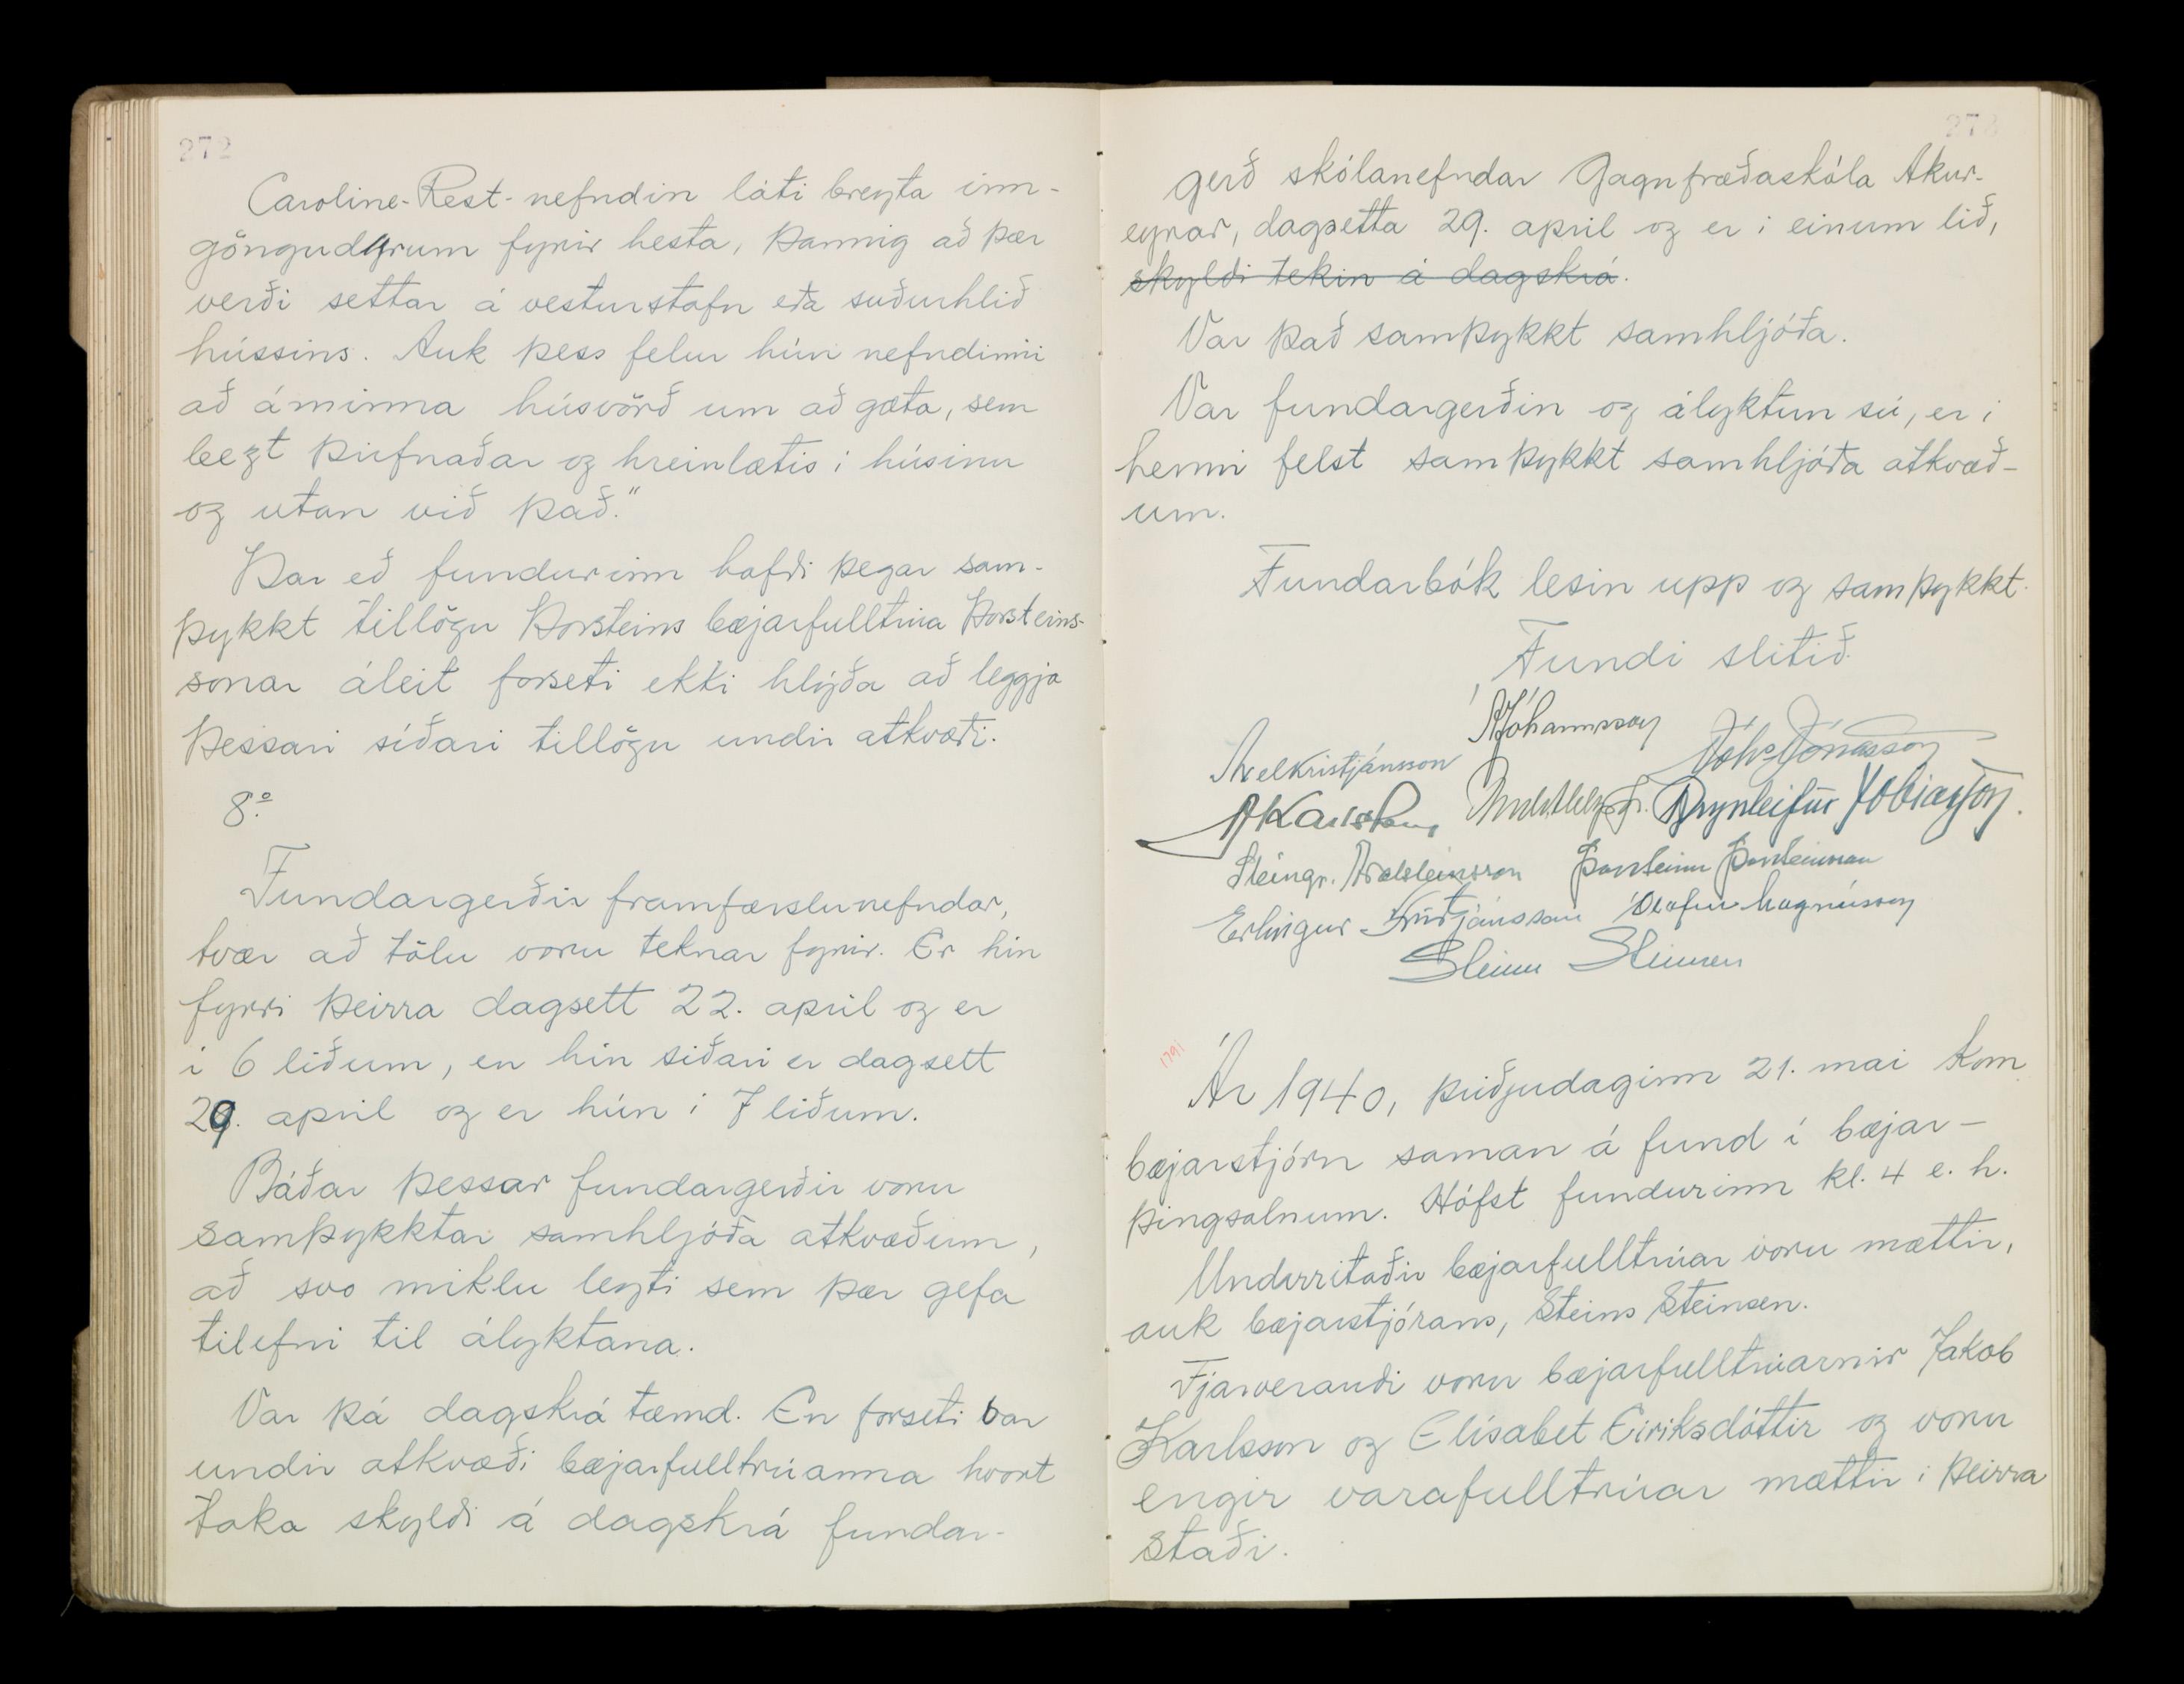 272
Caroline-Rest-nefndin láti breyta inn-
göngudyrum fyrir hesta, þannig að þær
verði settar á vesturstafn eða suðurhlið
hússins. Auk þess felur hún nefndinni
að áminna húsvörð um að gæta, sem
bezt þrifnaðar og hreinlætis i húsinu
og utan við það."
Þar eð fundurinn hafði þegar sam-
þykkt tillögu Þorsteins bæjarfulltrúa Þorsteins-
sonar áleit forseti ekki hlýða að leggja
þessari síðari tillögu undir atkvæði.
8º
Fundargerðir framfærslunefndar,
tvær að tölu voru teknar fyrir. Er hin
fyrri þeirra dagsett 22. april og er
i 6 liðum, en hin siðari er dagsett
29. april og er hún i 7 liðum.
Báðar þessar fundargerðir voru
samþykktar samhljóða atkvæðum,
að svo miklu leyti sem þær gefa
tilefni til ályktana.
Var þá dagskrá tæmd. En forseti bar
undir atkvæði bæjarfulltrúanna hvort
taka skyldi á dagskrá fundar-
273
gerð skólanefndar Gagnfræðaskóla Akur-
eyrar, dagsetta 29. april og er i einum lið,
skyldi tekin á dagskrá.
Var það samþykkt samhljóða.
Var fundargerðin og ályktun sú, er i
henni felst samþykkt samhljóða atkvæð-
um.
Fundarbók lesin upp og samþykkt.
Fundi slitið.
Jóhannsson
Axel Kristjánsson Jóhs Jónasson
Brynleifur Tobiasson.
Steingr. Aðalsteinsson Þorsteinn Þorsteinsson
Erlingur Friðjónsson Ólafur Magnússon
Steinn Steinsen
1791
Ár 1940, þriðjudaginn 21. mai kom
bæjarstjórn saman á fund í bæjar-
þingsalnum. Hófst fundurinn kl. 4 e. h.
Undirritaðir bæjarfulltrúar voru mættir,
auk bæjarstjórans, Steins Steinsen.
Fjarverandi voru bæjarfulltrúarnir Jakob
Karlsson og Elísabet Eiriksdóttir og voru
engir varafulltrúar mættir i þeirra
staði.